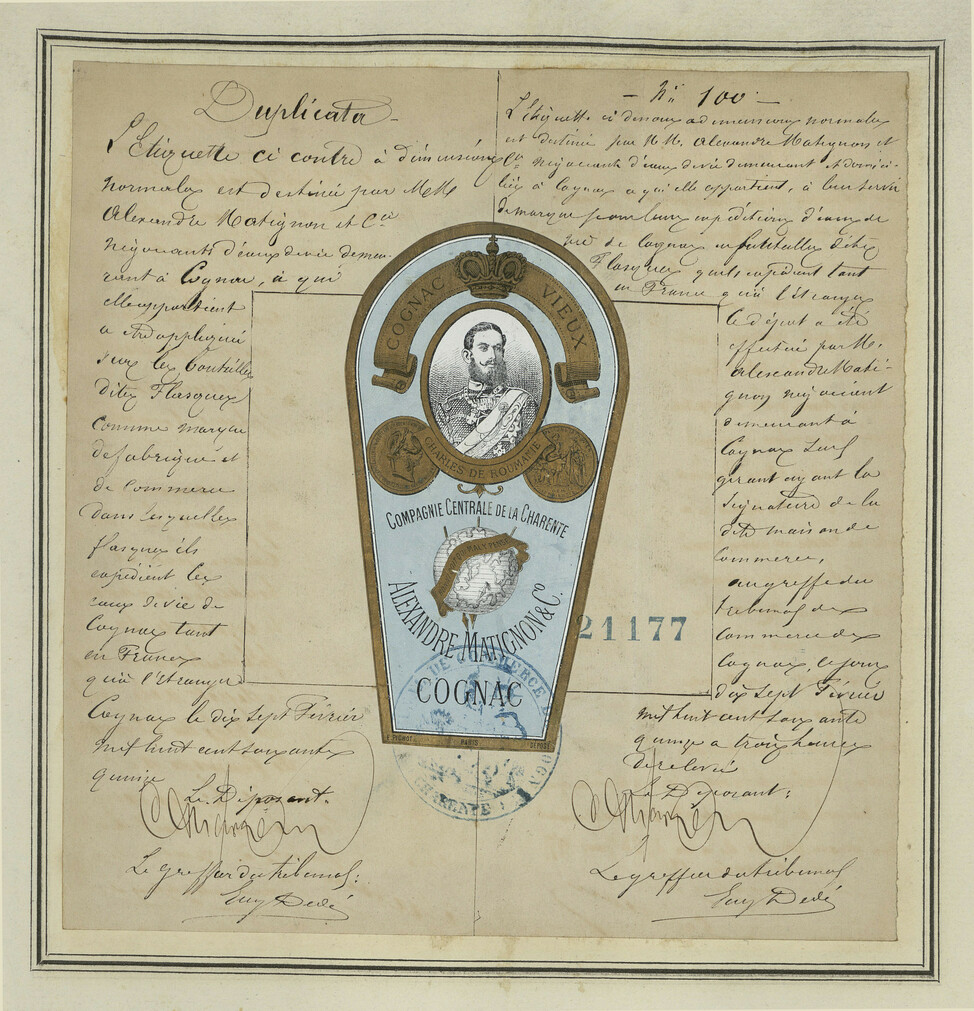 Duplicata
L'Etiquette ci contre à dimensions
normales est destinée par MMrs
Alexandre Matignon et Cie
négociants d'eaux de vie demeu-
rant à Cognac, à qui
elle appartient
a être appliquée
sur les bouteilles
dites Flasques
comme marque
de fabrique et
de commerce
dans lesquelles
flasques ils
expédient les
eaux de vie de
Cognac tant
en France
qu'à l'Etranger
Cognac le dix sept Février
mil huit cent soixante
quinze
Le Déposant.
Le greffier du tribunal:
Guy Dedé
- No 100 -
L'étiquette ci dessous à dimensions normales
est destinée par MM. Alexandre Matignon et
Cie négociants d'eaux de vie demeurant et domici-
liés à Cognac a qui elle appartient, à leur servir
de marque pour leurs expéditions d'eaux de
vie de Cognac en bouteilles dites
Flasques qu'ils expédient tant
en France qu'à l'étranger
Ce dépôt a été
effectué par M.
Alexandre Mati-
gnon négociant
demeurant à
Cognac seul
gérant ayant la
signature de la
dite maison de
commerce,
au greffe du
tribunal de
commerce de
Cognac, ce jour
dix sept Février
mil huit cent soixante
quinze a trois heures
de relevée
Le Déposant:
Le greffier du tribunal
Guy Dedé
COGNAC VIEUX
CHARLES DE ROUMANIE
COMPAGNIE CENTRALE DE LA CHARENTE
ALEXANDRE MATIGNON & Co
COGNAC
PARIS
DÉPOSÉ
21177
DE COMMERCE
CHARENTE